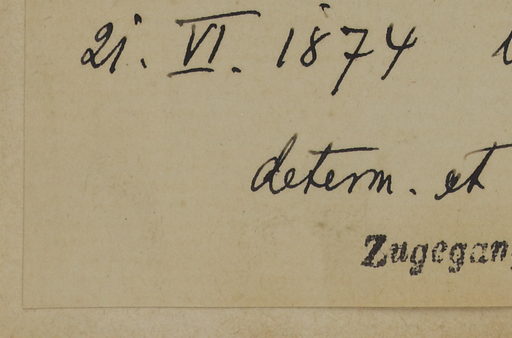 21. VI. 1874
determ. et
Zugegan